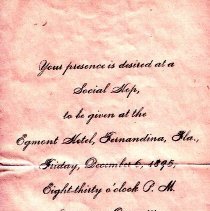 Your presence is desired at a
Social Hop,
to be given at the
Egmont Hotel, Fernandina, Fla.,
Friday, December 6, 1895,
Eight-thirty o'clock P. M.